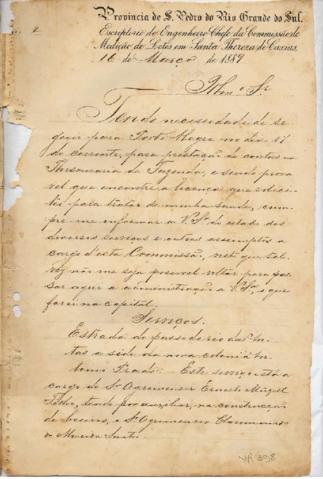 Provincia de S. Pedro do Rio Grande do Sul.
Escriptorio do Engenheiro Chefe da Commissão de
Medição de Lotes em Santa Thereza de Caxias,
16 de Março de 1887
Illmo. Sr.
Tendo necessidade de se
guir para Porto Alegre no dia 17
do corrente, para prestação de contas na
Thesouraria de Fazenda, e sendo prova
vel que encontre a licença que solici
tei para tratar de minha saude, cum
pre-me informar a V.S. do estado dos
diversos serviços e outros assumptos a
cargo d'esta Commissão, visto que tal
vez não me seja possivel voltar para pas
sar aqui a administração a V.S., o que
farei na capital.
Serviços.
Estrada do passo do rio das An
tas a séde da nova colonia An
tonio Prado. Este serviço está a
cargo do Sr. Agrimensor Ernesto
Filho, tendo por auxiliar, na construcção
de, o Sr. Agrimensor
de Almeida